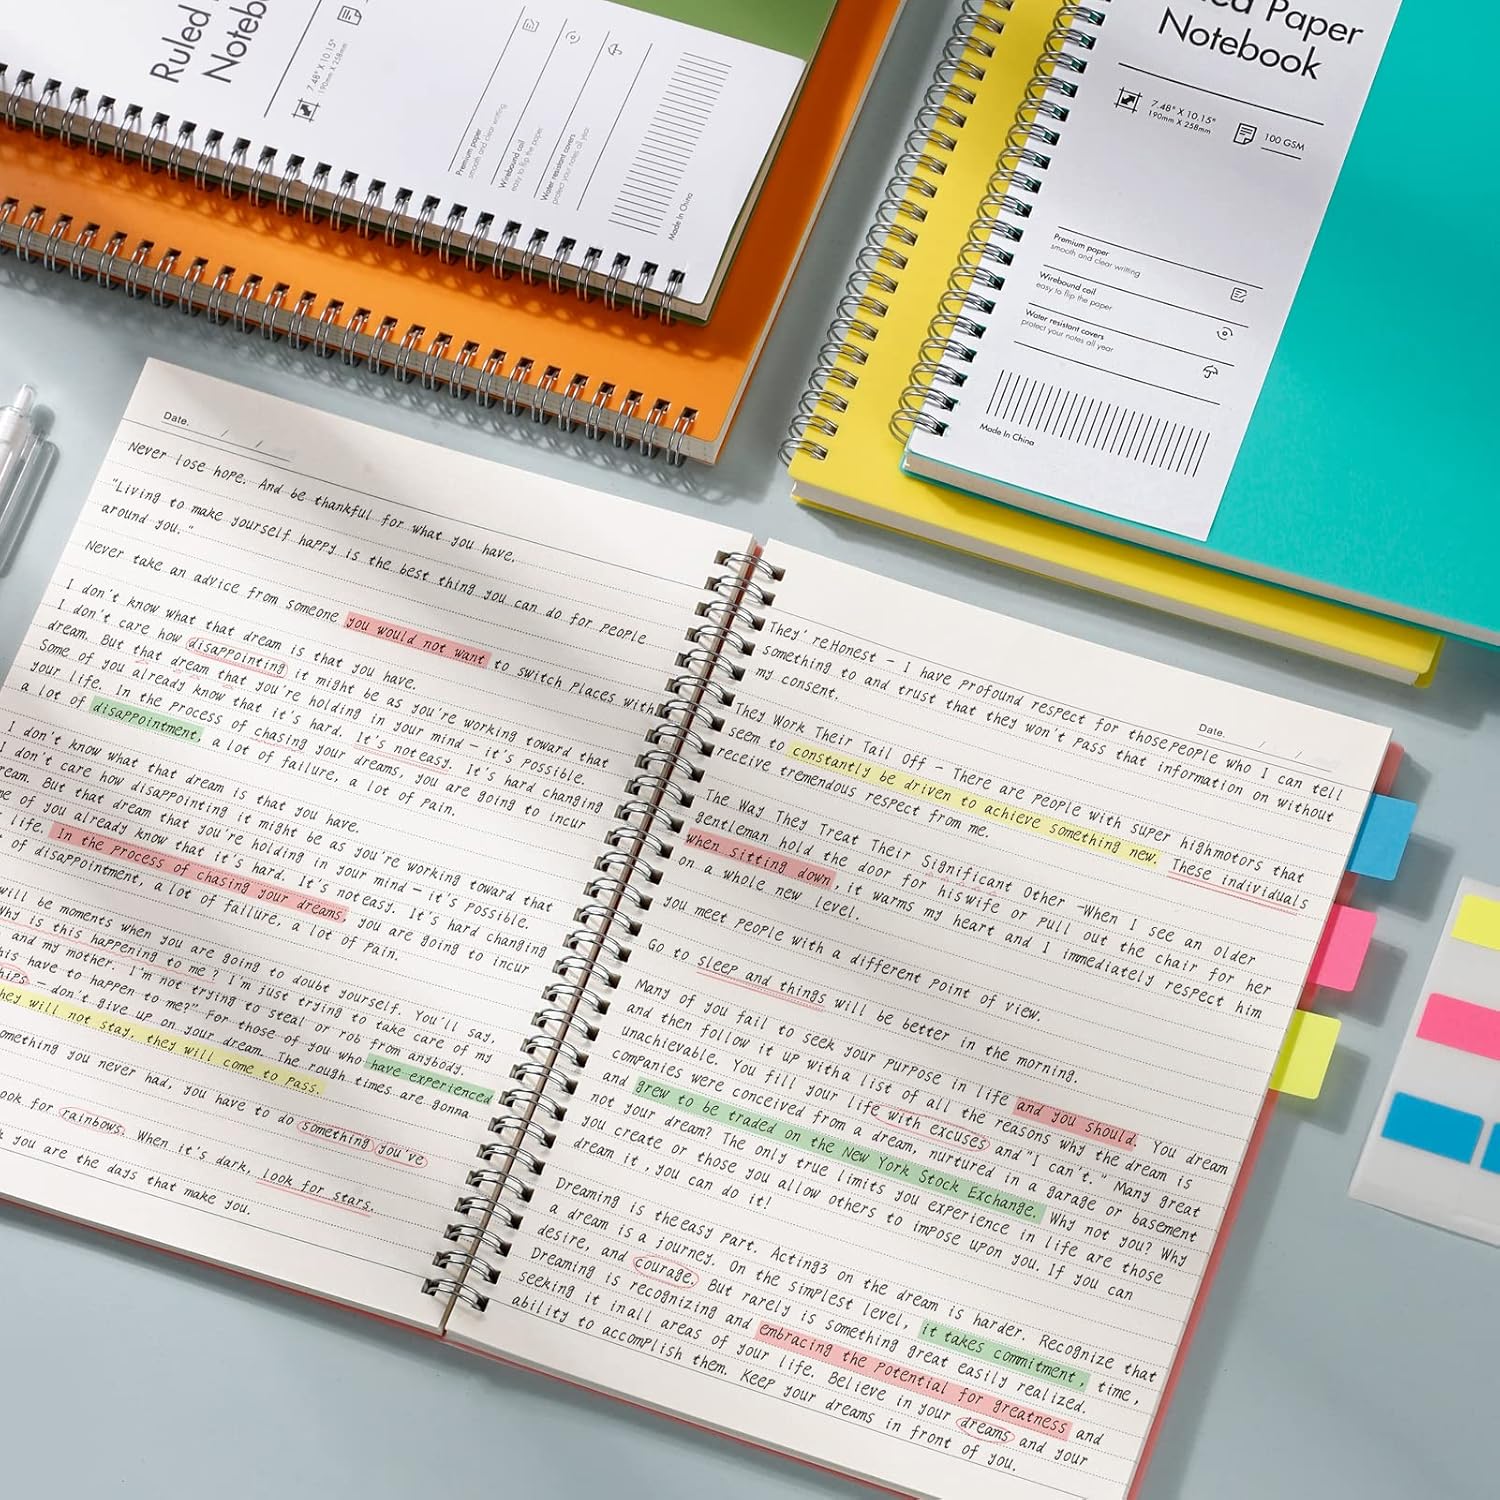 Ruled
Noteb
7.48" X 10.15"
190mm X 258mm
Premium paper
smooth and clear writing
Wirebound coil
easy to flip the paper
Water resistant covers
protect your notes all year
Made In China
ed Paper
Notebook
7.48" X 10.15"
190mm X 258mm
100 GSM
Premium paper
smooth and clear writting
Wirebound coil
easy to flip the paper
Water resistant covers
protect your notes all year
Made In China
Date. / /
Never lose hope. And be thankful for what you have.
"Living to make yourself happy is the best thing you can do for people
around you."
Never take an advice from someone you would not want to switch places with
I don't know what that dream is that you have.
I don't care how disappointing it might be as you're working toward that
dream. But that dream that you're holding in your mind — it's possible.
Some of you already know that it's hard. It's noteasy. It's hard changing
your life. In the process of chasing your dreams, you are going to incur
a lot of disappointment, a lot of failure, a lot of pain.
I don't know what that dream is that you have.
I don't care how disappointing it might be as you're working toward that
ream. But that dream that you're holding in your mind — it's possible.
me of you already know that it's hard. It's noteasy. It's hard changing
life. In the process of chasing your dreams, you are going to incur
of disappointment, a lot of failure, a lot of pain.
will be moments when you are going to doubt yourself. You'll say,
Why is this happening to me? I'm just trying to take care of my
and my mother. I'm not trying to steal or rob from anybody.
his have to happen to me?" For those of you who have experienced
hips — don't give up on your dream. The rough times are gonna
hey will not stay, they will come to pass.
omething you never had, you have to do something you've
ook for rainbows. When it's dark, look for stars.
k you are the days that make you.
Date. / /
They' reHonest — I have profound respect for thosepeople who I can tell
something to and trust that they won't pass that information on without
my consent.
They Work Their Tail Off — There are people with super highmotors that
seem to constantly be driven to achieve something new. These individuals
receive tremendous respect from me.
The Way They Treat Their Significant Other —When I see an older
gentleman hold the door for hiswife or pull out the chair for her
when sitting down, it warms my heart and I immediately respect him
on a whole new level.
you meet people with a different point of view.
Go to sleep and things will be better in the morning.
Many of you fail to seek your purpose in life and you should. You dream
and then follow it up witha list of all the reasons why the dream is
unachievable. You fill your life with excuses and "I can't." Many great
companies were conceived from a dream, nurtured in a garage or basement
and grew to be traded on the New York Stock Exchange. Why not you? Why
not your dream? The only true limits you experience in life are those
you create or those you allow others to impose upon you. If you can
dream it ,you can do it!
Dreaming is theeasy part. Acting3 on the dream is harder. Recognize that
a dream is a journey. On the simplest level, it takes commitment, time,
desire, and courage. But rarely is something great easily realized.
Dreaming is recognizing and embracing the potential for greatness and
seeking it inall areas of your life. Believe in your dreams and your
ability to accomplish them. Keep your dreams in front of you.